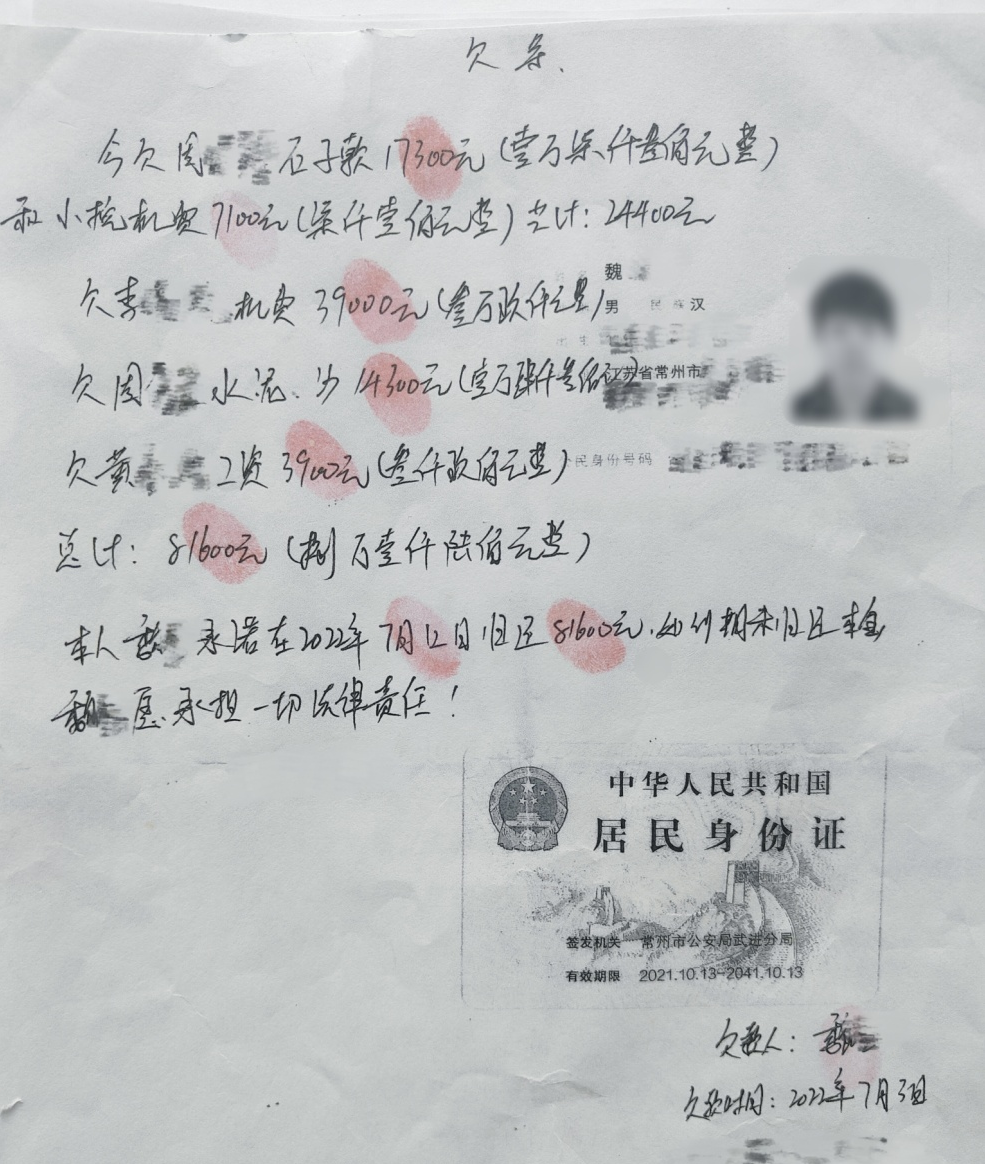 欠条.
今欠周 石子款17300元(壹万柒仟叁佰元整)
和小挖机费7100元(柒仟壹佰元整)总计:24400元
魏
欠李 机费 39000元(叁万玖仟元整)
男 民族 汉
出生
欠周 水泥、沙 14300元(壹万肆仟叁佰元
江苏省常州市
欠黄 工资 3900元(叁仟玖佰元整)
民身份号码
总计: 81600元(捌万壹仟陆佰元整)
本人魏 承诺在2022年7月12日归还81600元.如到期未归还本金
魏 愿承担一切法律责任!
中华人民共和国
居民身份证
签发机关 常州市公安局武进分局
有效期限 2021.10.13-2041.10.13
欠款人: 魏
欠款时间: 2022年7月3日